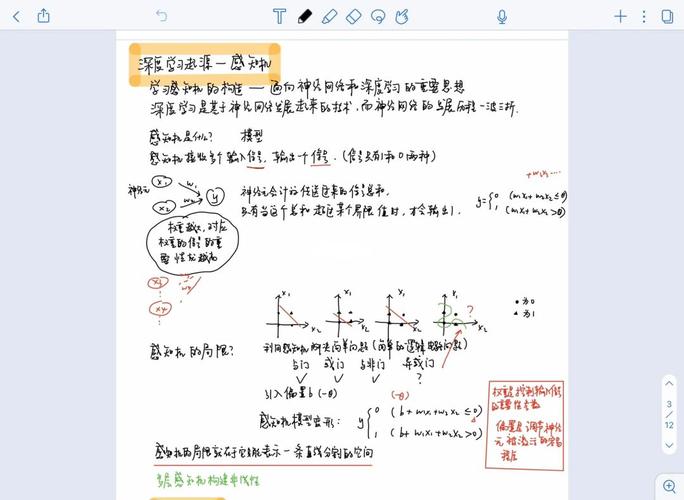 深度学习起源—感知机
学习感知机的构造 — 通向神经网络和深度学习的重要思想
深度学习是基于神经网络发展起来的技术,而神经网络的发展历程一波三折.
感知机是什么? 模型
感知机接收多个输入信号,输出一个信号.(信号只有1和0两种)
+w3x3....
神经元 x1 w1 y
x2 w2
神经元会计算传送过来的信号总和,
只有当这个总和超过某个界限值时,才会输出1.
y={0 (w1x1+w2x2≤θ)
1 (w1x1+w2x2>θ)
权重越大,对应
权重的信号的重
要性就越高
x3 w3
x4
x1 x1 x1 x1 ?
x2 x2 x2 x2
• 为0
▲ 为1
感知机的局限?
利用感知机解决简单问题(简单的逻辑电路问题)
与门 或门 与非门 异或门
✓ ✓ ✓ ?
引入偏置b (-θ)
(-θ)
感知机模型变形: y{0 (b+w1x1+w2x2≤0)
1 (b+w1x1+w2x2>0)
权重是控制输入信号
的重要性参数
偏置是调节神经
元被激活的容易
程度
感知机的局限就在于它只能表示一条直线分割的空间
多层感知机构建非线性
3
12